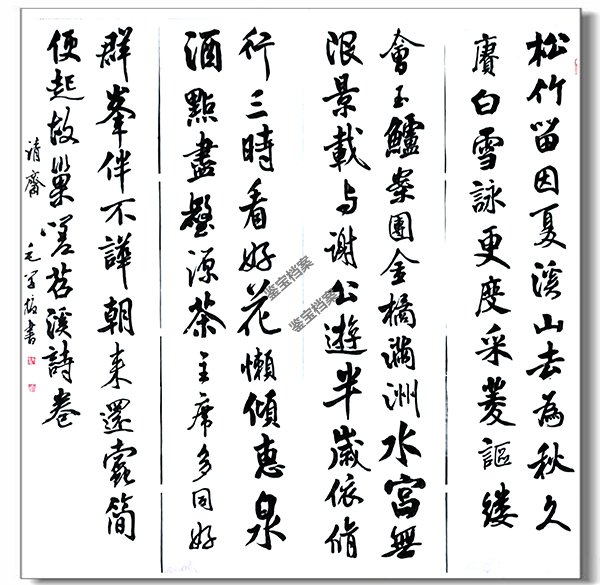 松竹留因夏溪山去為秋久
賡白雪詠更度采菱謳縷
會玉鱸案團金橘滿洲水宮無
限景載与謝公遊半歲依脩
竹三時看好花懶傾惠泉
酒點盡壑源茶主席多同好
群峯伴不譁朝来還蠹簡
便起故巢嗟苕溪詩卷
清齋 毛学 書
鉴宝档案
鉴宝档案